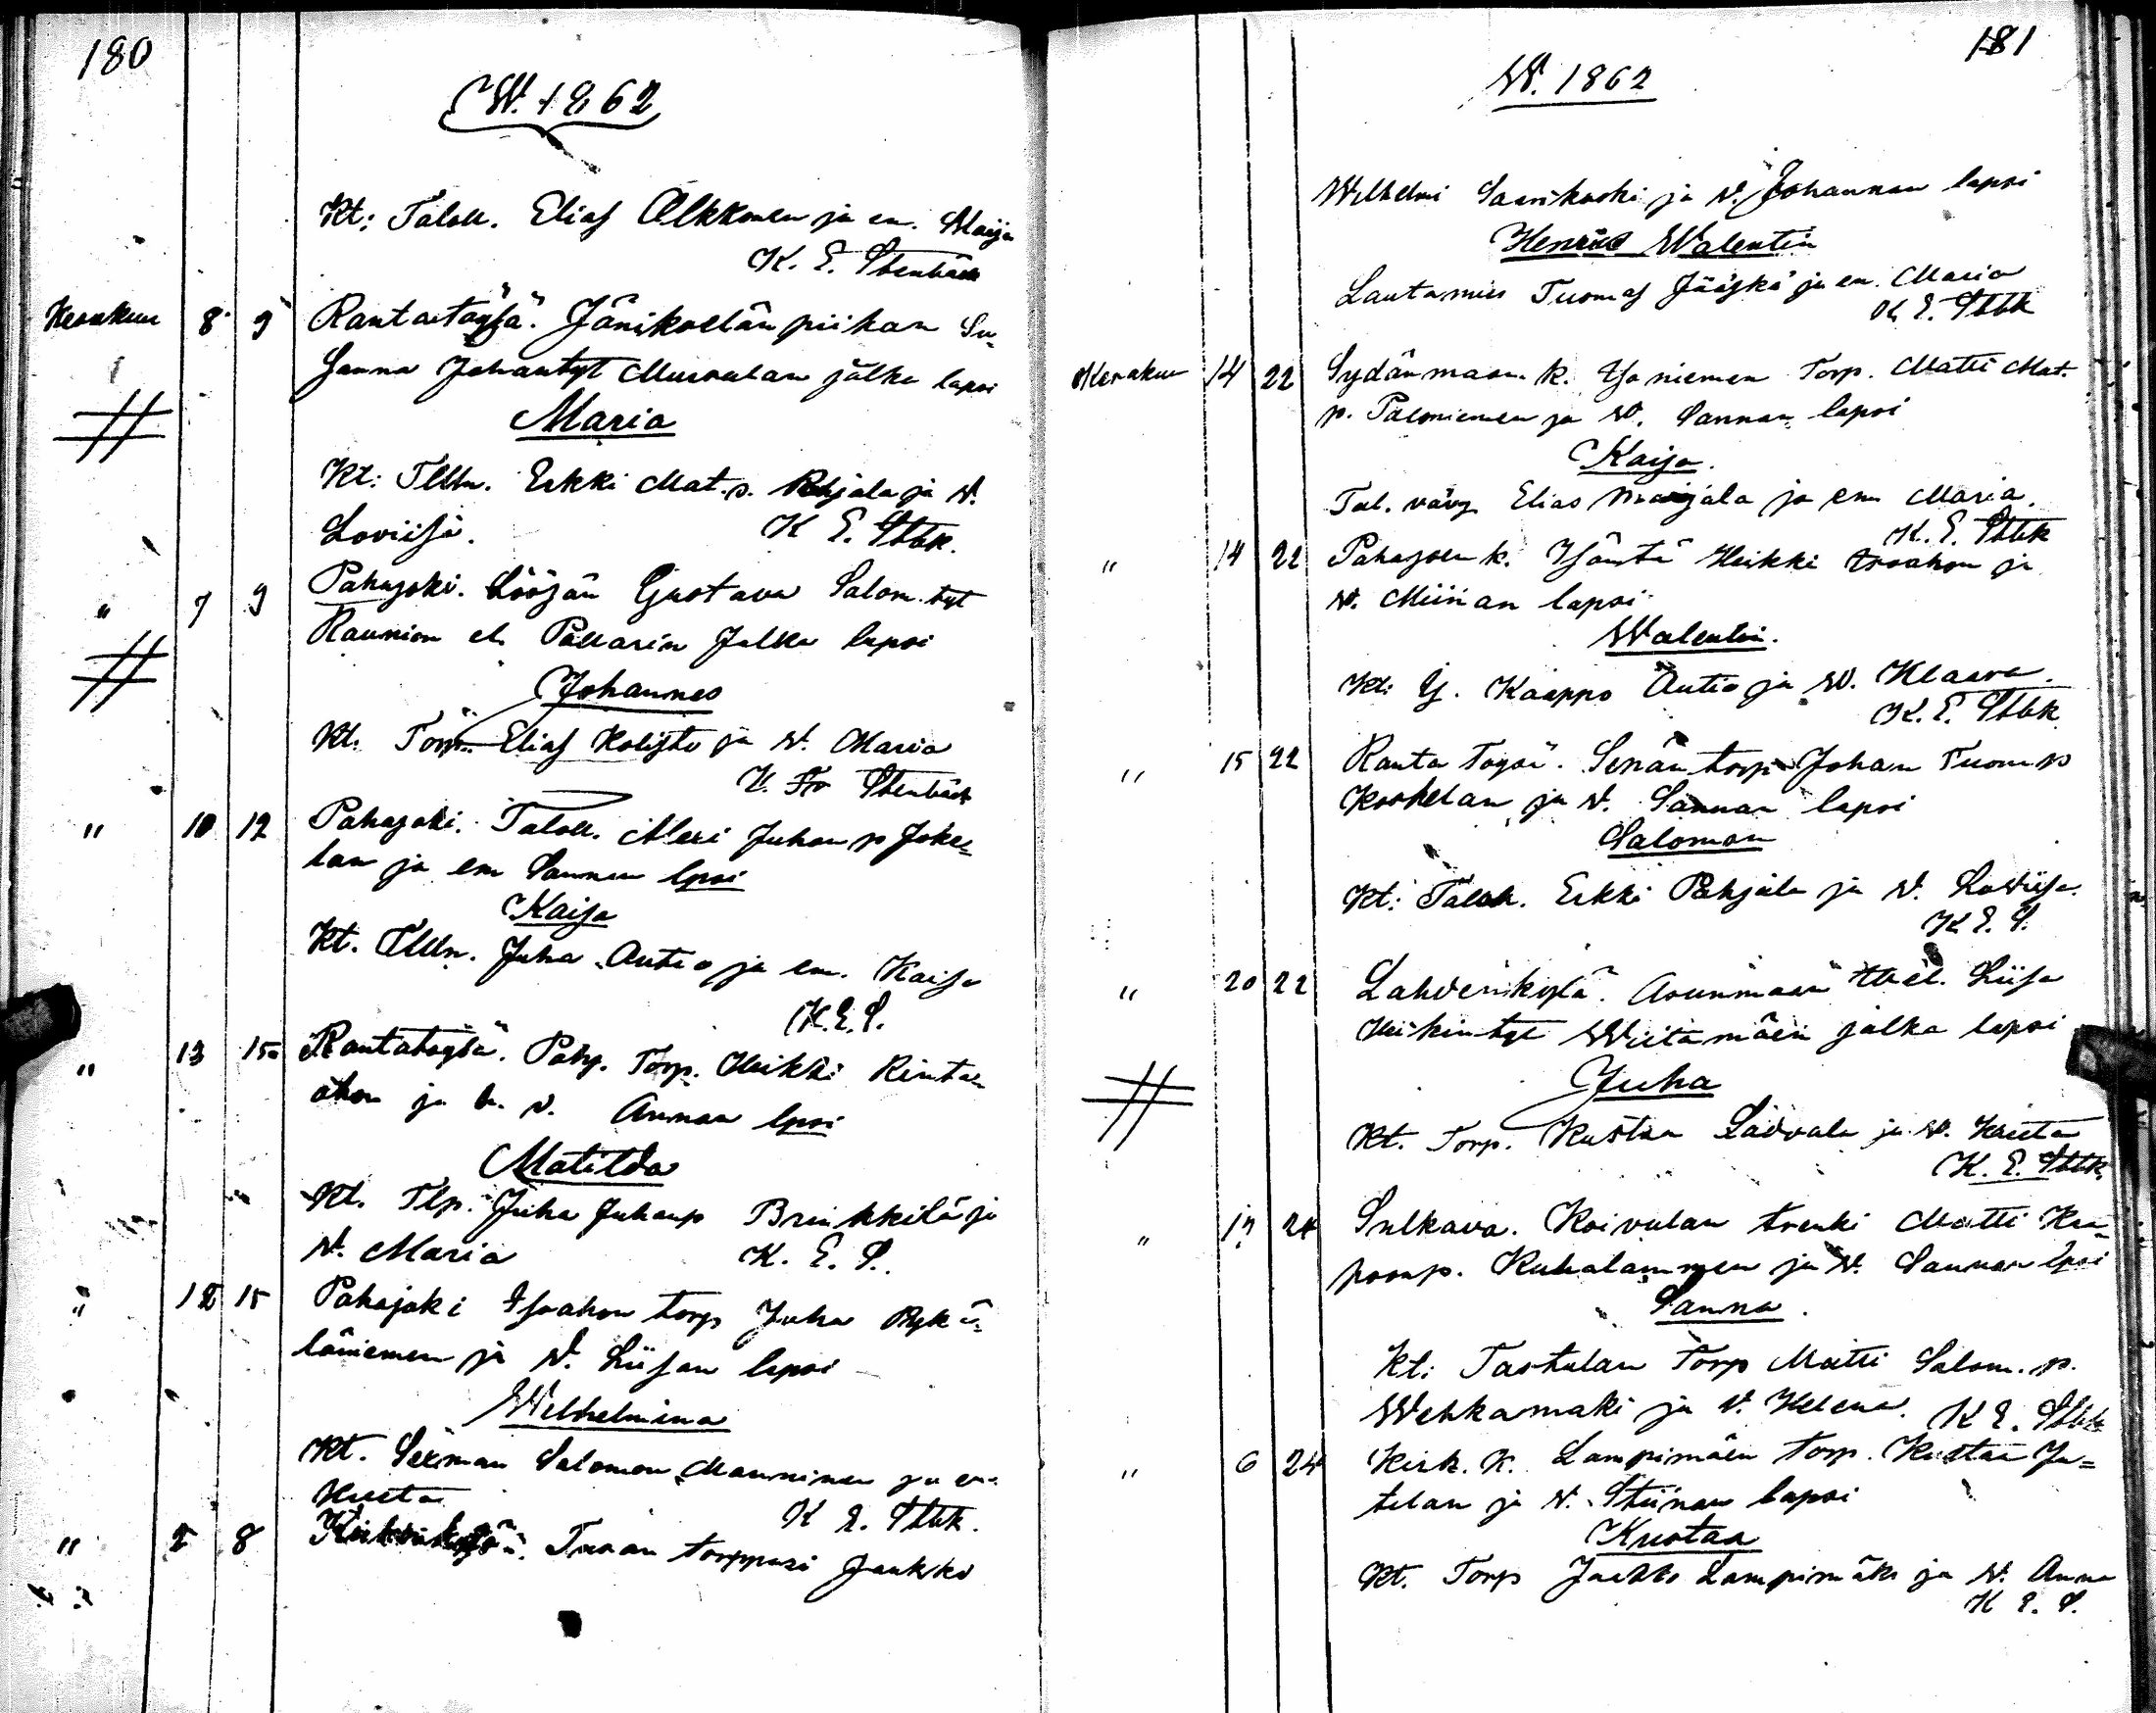 180
W. 1862
Kt: Taloll. Elias Alkkonen ja em. Maija
K. E. Stenbäck
Kesäkuu 8 9 Rantatöysä. Jänikoelän piikan Su-
sanna Johantyt Mussalan jälkä lapsi
Maria
Kt: Tllln. Erkki Mat. p. Pohjala ja W.
Loviisa. K E. Stbk.
" 7 9 Pahajoki. Löösän Gustava Salom. tyt
Raunion el. Pallarin Jalka lapsi
Johannes
Kt. Torp. Elias Kolisto ja W. Maria
K. E. Stenbäck
" 10 12 Pahajoki. Taloll. Meri Juhan p Joke-
lan ja em Sannan lpsi
Kaisa
Kt. Tllln. Juha Autio ja em. Kaisa
K. E. S.
" 13 15 Rantatöysä. Pohj. Torp. Heikki Rinta-
ahon ja h. v. Annan lpsi
Matilda
Kt. Tlp. Juha Juhanp Brinkkilä ja
W. Maria K. E. S.
" 12 15 Pahajoki Isoahon torp Juha Rykä-
läniemen ja W. Liisan lapsi
Wilhelmina
Kt. Salomon Manninen ja em.
Kreeta K E. Stbk.
" 2 8 Kirkonkylä. Tuvan torppari Jaakko
181
W. 1862
Wilhelmi Saarikoski ja W. Johannan lapsi
Henrik Walentin
Lautamies Tuomas Jääskä ja em. Maria
K E. Stbk
Kesäkuu 14 22 Sydänmaan k. Isoniemen Torp. Matti Mat.
p. Paloniemen ja W. Sannan lapsi
Kaisa.
Tal. vävy Elias Maijala ja em Maria.
K. E. Stbk
" 14 22 Pahajoen k. Isäntä Heikki Isoahon ja
W. Miinan lapsi
Walentin.
Kt: Y. Kaappo Autio ja W. Klaara.
K. E. Stbk
" 15 22 Ranta töysä. Serän torp Johan Tuom p
Koskelan ja W. Sannan lapsi
Saloman
Kt: Taloll. Erkki Pohjala ja W. Lowiisa.
K E. S.
" 20 22 Lahdenkylä. Asunmaan Liisa
Heikintyt Wiitamäen jalka lapsi
Juha
Kt. Torp. Kustaa Ladvala ja W. Kreeta
K. E. Stbk.
" 17 24 Sulkava. Koivulan trenki Matti Kaa-
poonp. Kuhalammen ja W. Sannan lpsi
Sanna.
Kt: Tastulan Torp Matti Salom. p.
Wehkamaki ja W. Helena. K E. Stbk
" 6 24 Kirk. K. Lampimäen torp. Kustaa Ju-
telan ja W. Stiinan lapsi
Kustaa
Kt. Torp Jaakko Lampimäki ja W. Anna
K E. S.